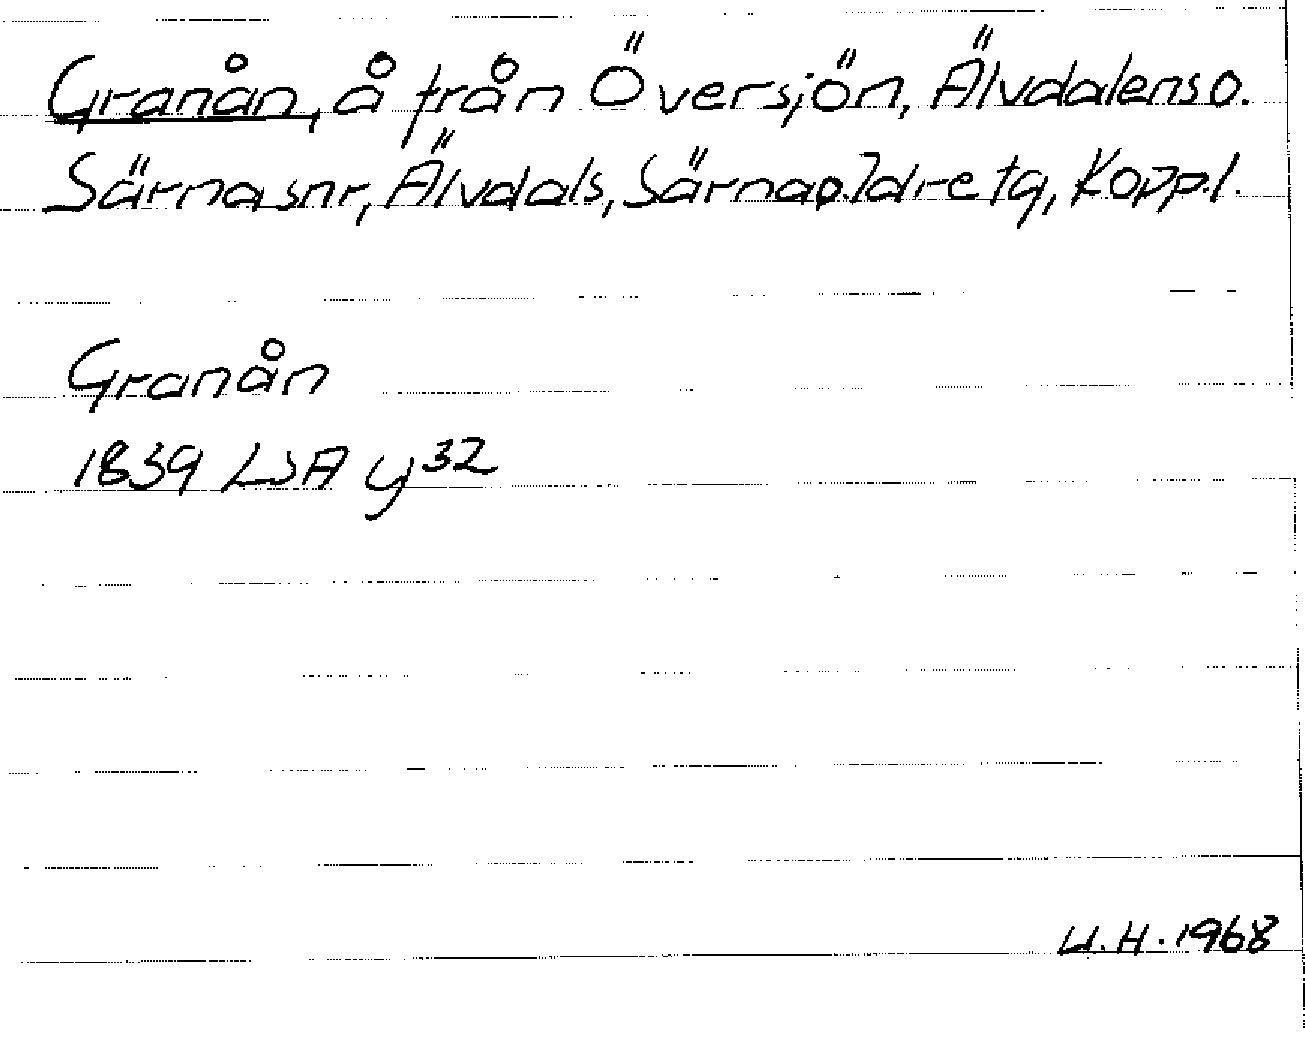 Granån, å från Översjön, Älvdalens o.
Särna snr, Älvdals, Särna o. Idre tg, Kopp.l.
Granån
1839 LSA y32
U.H. 1968